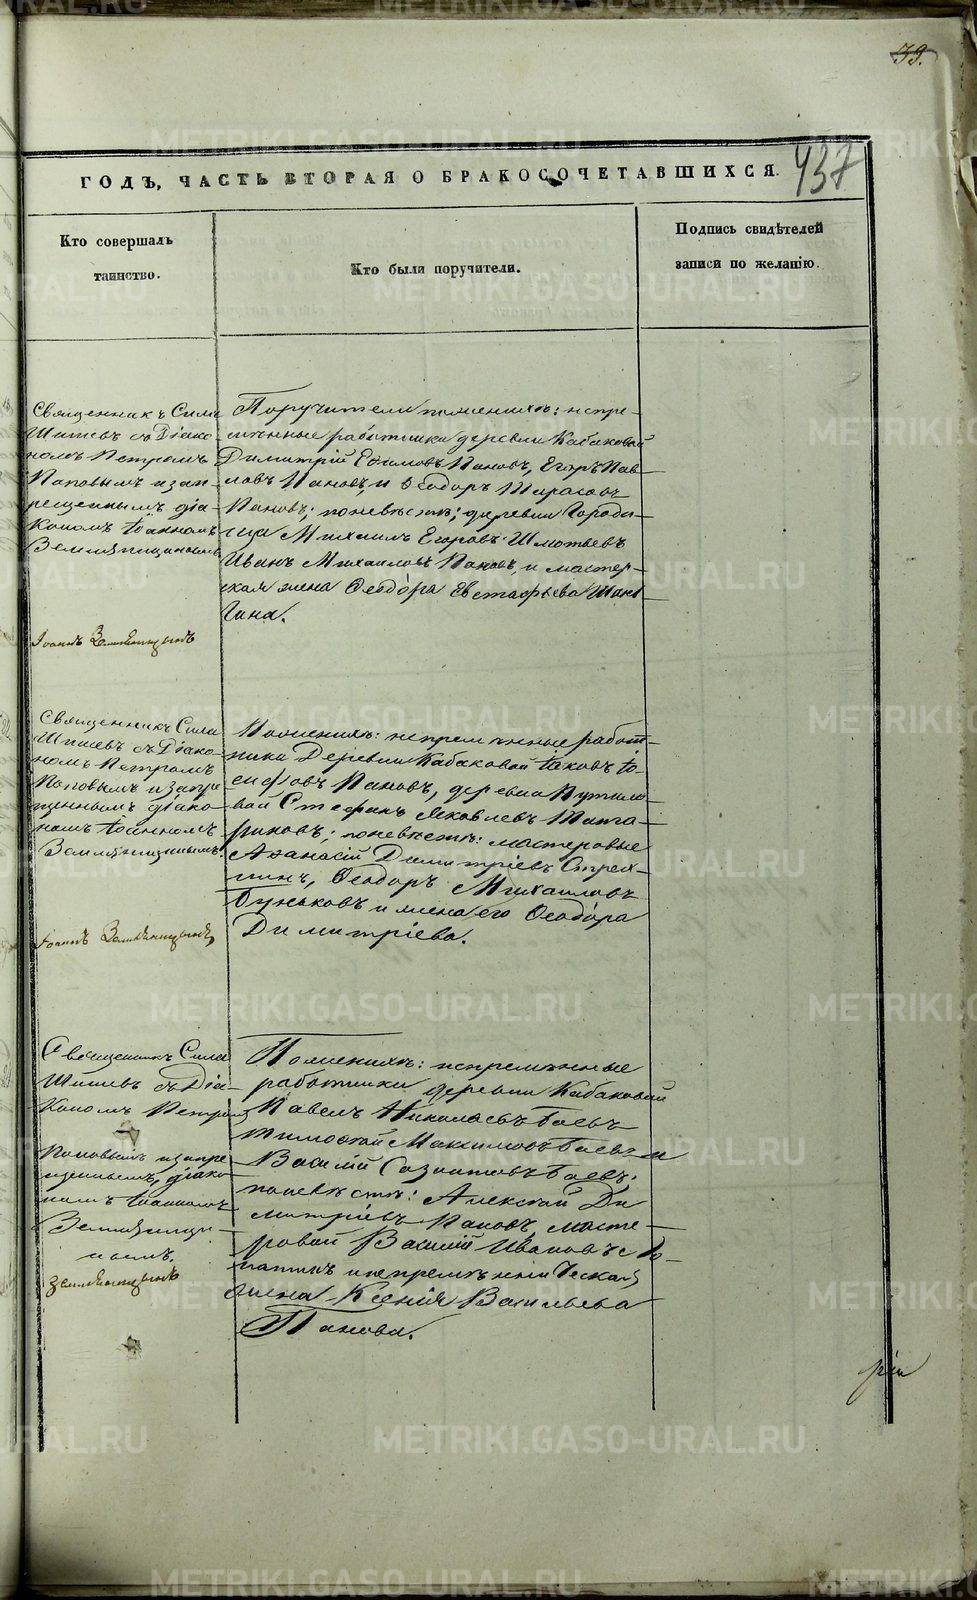 39.
437
ГОДЪ, ЧАСТЬ ВТОРАЯ О БРАКОСОЧЕТАВШИХСЯ.
Кто совершалъ
таинство.
Кто были поручители.
Подпись свидѣтелей
записи по желанію.
Священникъ Сила
Шишевъ съ Діако-
номъ Петромъ
Поповымъ и зап-
рещеннымъ діа-
кономъ Іоанномъ
Земляницынымъ
Іоаннъ Земляницынъ
Поручители по женихѣ: непре-
мѣнные работники деревни Кабаковой
Димитрій Ефимовъ Пановъ, Егоръ Пав-
ловъ Пановъ, и Ѳеодоръ Тарасовъ
Пановъ; по невѣстѣ; деревни Городи-
ща Михаилъ Егоровъ
Иванъ Михаиловъ Пановъ, и мастер-
ская жена Ѳеодора Евстафьева
Священникъ Сила
Шишевъ съ Діако-
номъ Петромъ
Поповымъ и запре-
щеннымъ діако-
номъ Іоанномъ
Земляницынымъ.
Іоаннъ Земляницынъ
По женихѣ: непремѣнные работ-
ники Деревни Кабаковой Іаковъ Іо-
сифовъ Пановъ, деревни Путило-
вой Стефанъ Яковлевъ Тата-
риновъ; по невѣстѣ: мастеровые
Аѳанасій Димитріевъ
Ѳеодоръ Михаиловъ
Буньковъ и жена его Ѳеодора
Димитріева.
Священникъ Сила
Шишевъ съ Діа-
кономъ Петромъ
Поповымъ и запре-
щеннымъ діако-
номъ Іоанномъ
Земляницы-
нымъ.
Земляницынъ
По женихѣ: непремѣнные
работники деревни Кабаковой
Павелъ Николаевъ Баевъ
Тимоѳей Максимовъ Баевъ и
Василій Созонтовъ Баевъ;
по невѣстѣ: Алексѣй Ди-
митріевъ Пановъ, масте-
ровой Василій Ивановъ
и непремѣнническая
жена Ксенія Васильева
Панова.
METRIKI.GASO-URAL.RU